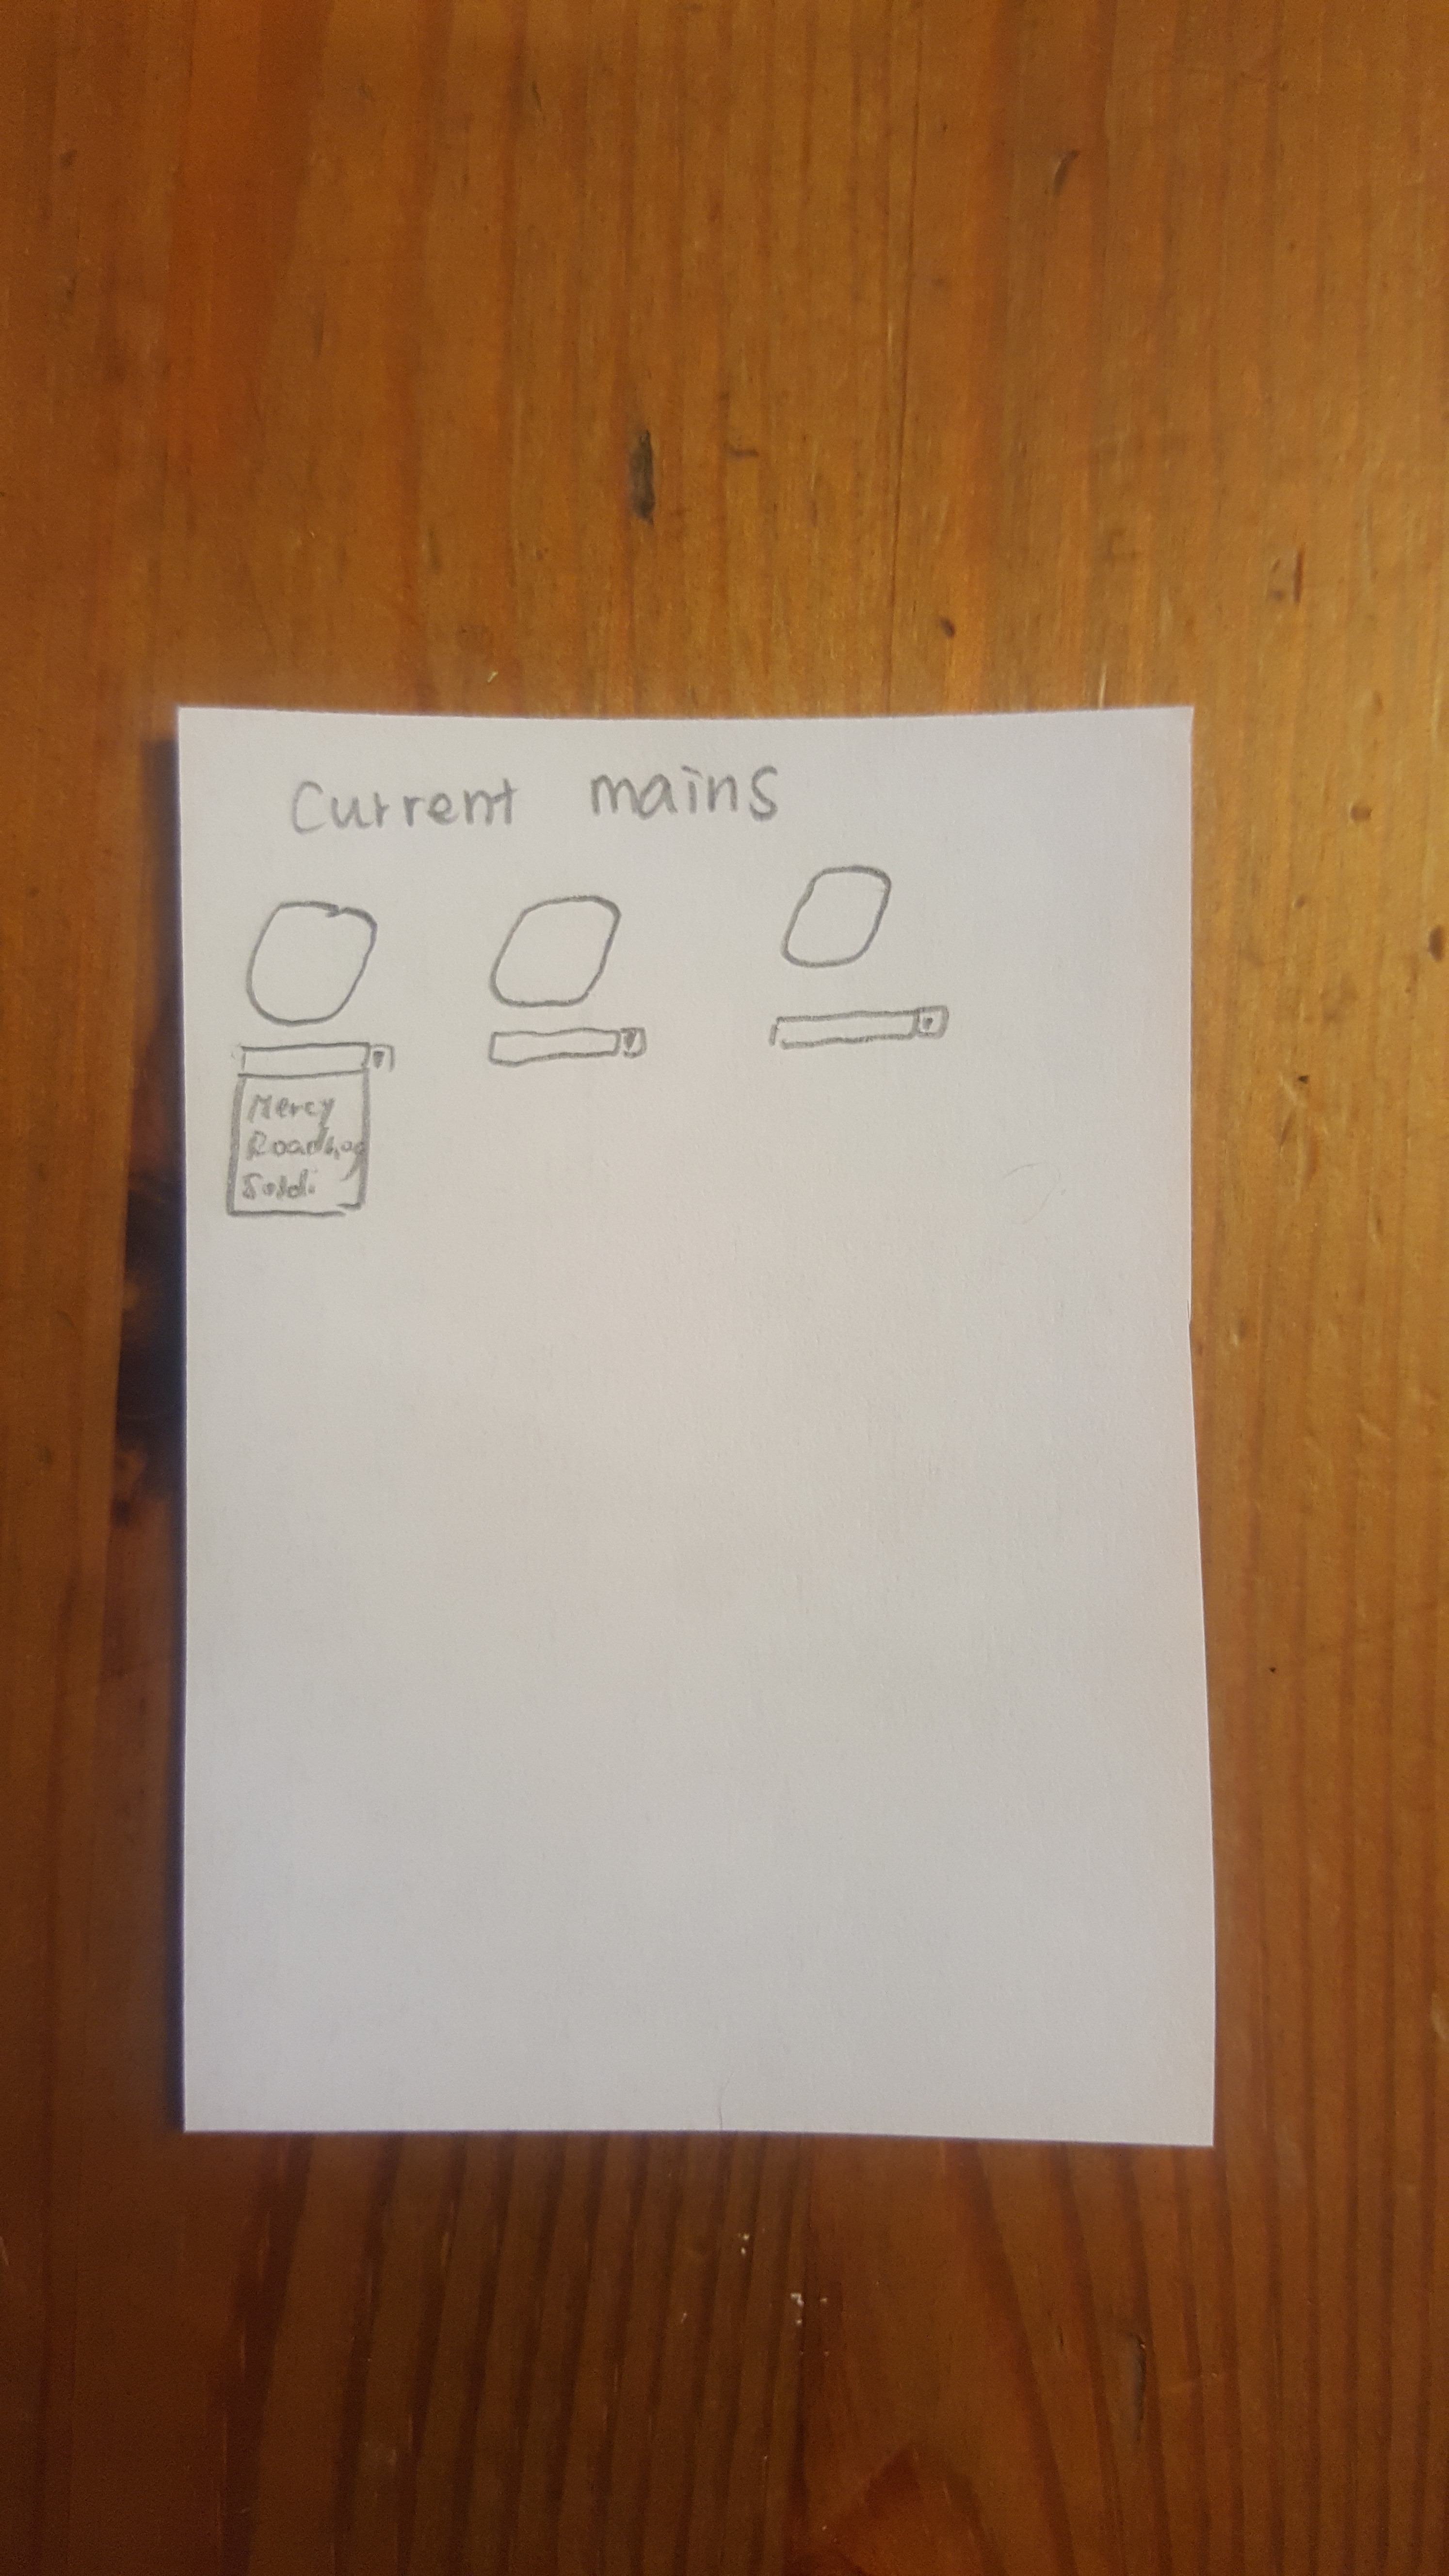 Current mains
Mercy
Roadhog
Soldi